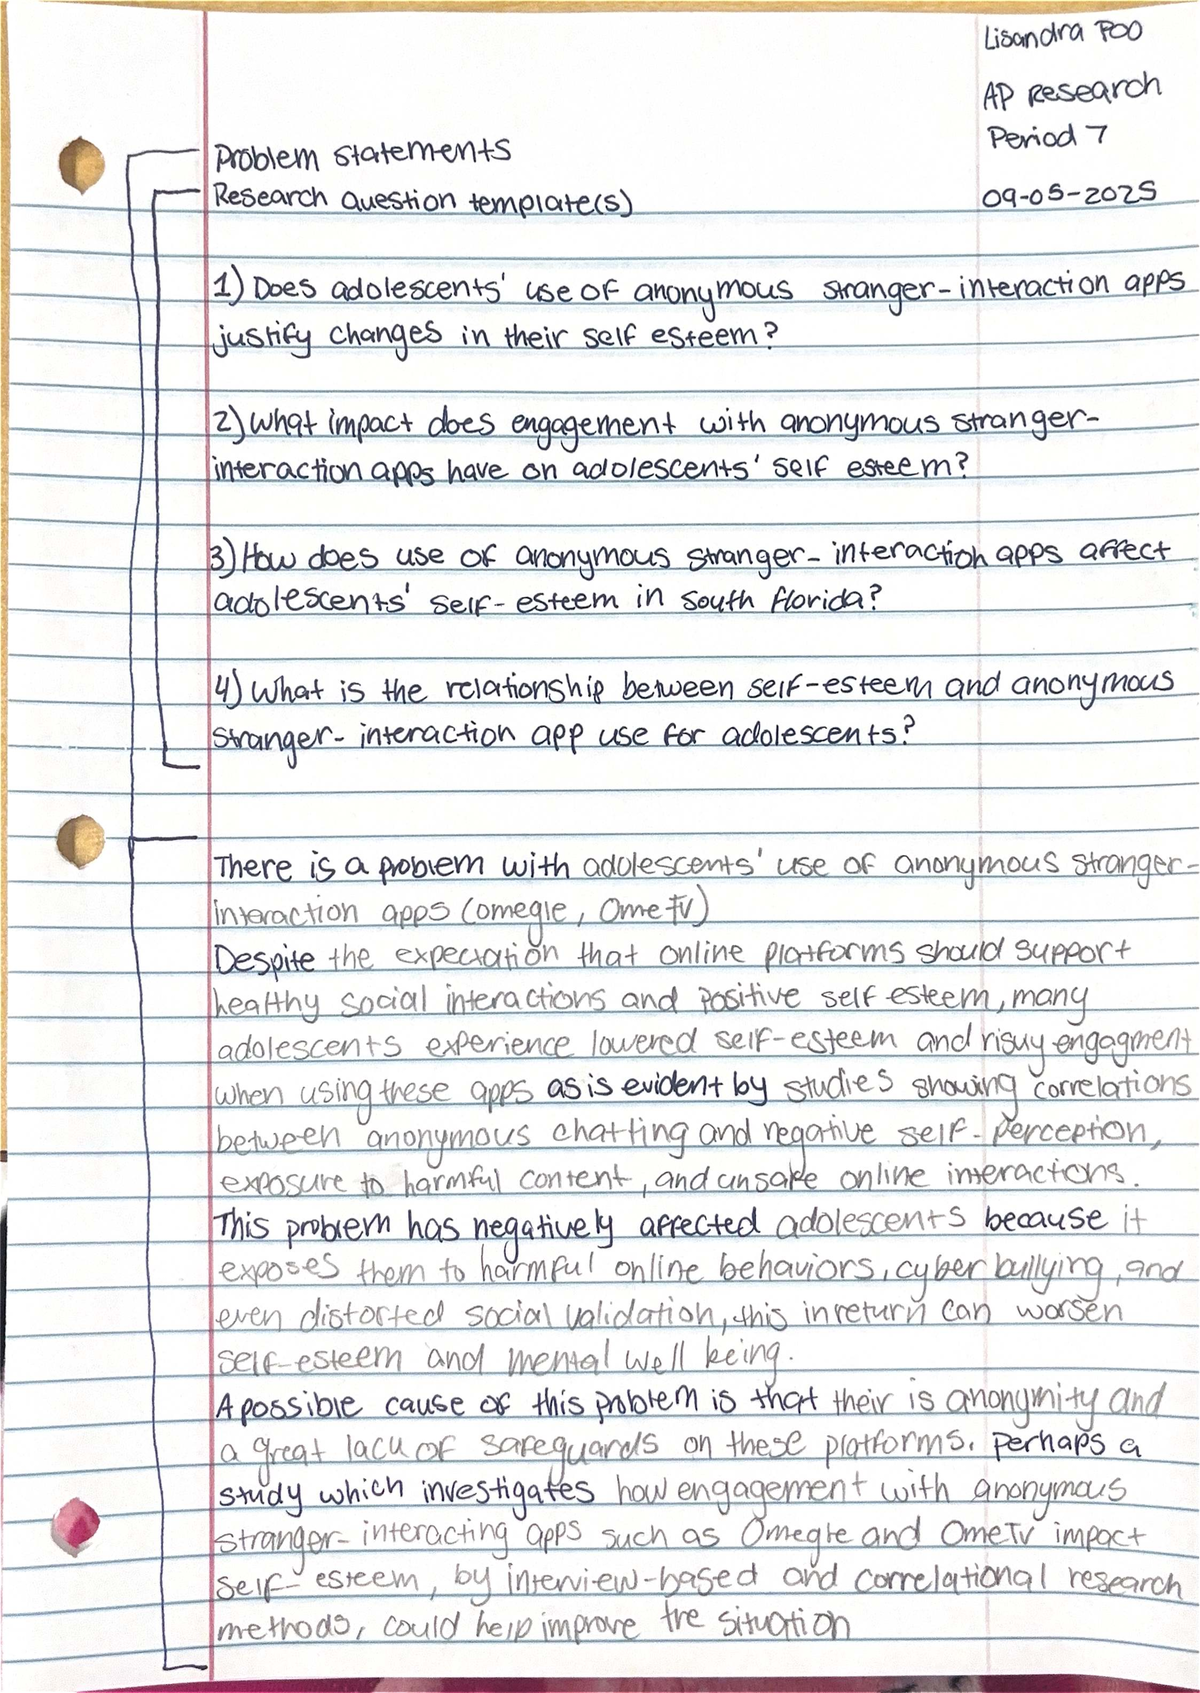 Lisandra Poo
AP Research
Period 7
09-05-2025
Problem statements
Research question template(s)
1) Does adolescents' use of anonymous stranger-interaction apps
justify changes in their self esteem?
2) What impact does engagement with anonymous stranger-
interaction apps have on adolescents' self esteem?
3) How does use of anonymous stranger-interaction apps affect
adolescents' self-esteem in South Florida?
4) What is the relationship between self-esteem and anonymous
stranger-interaction app use for adolescents?
There is a problem with adolescents' use of anonymous stranger-
interaction apps (omegle, Ome TV)
Despite the expectation that online platforms should support
healthy social interactions and positive self esteem, many
adolescents experience lowered self-esteem and risky engagment
when using these apps as is evident by studies showing correlations
between anonymous chatting and negative self-perception,
exposure to harmful content, and unsafe online interactions.
This problem has negatively affected adolescents because it
exposes them to harmful online behaviors, cyber bullying, and
even distorted social validation, this in return can worsen
self-esteem and mental well being.
A possible cause of this problem is that their is anonymity and
a great lack of safeguards on these platforms. Perhaps a
study which investigates how engagement with anonymous
stranger-interacting apps such as Omegle and OmeTv impact
self-esteem, by interview-based and correlational research
methods, could help improve the situation